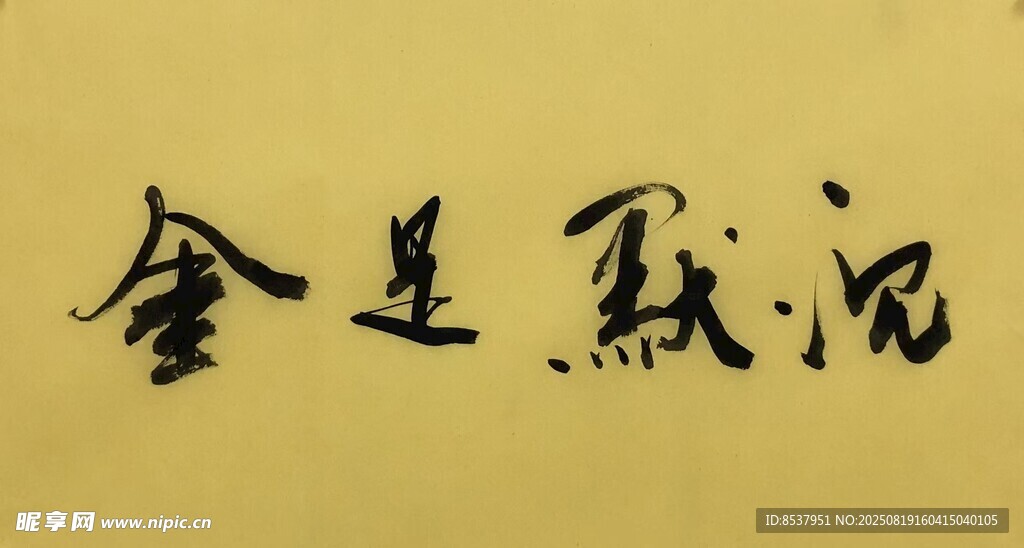 沉默是金
昵享网 www.nipic.cn
ID:8537951 NO:20250819160415040105